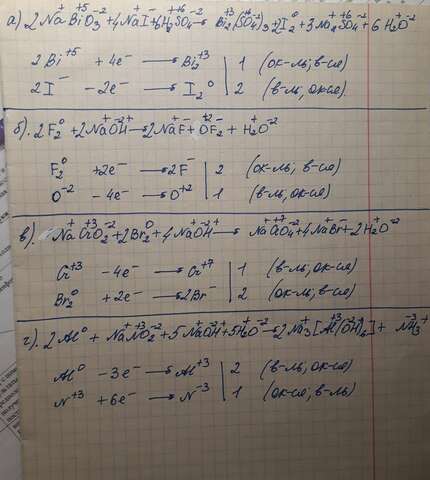 а) 2Na⁺Bi⁺⁵O₃⁻² + 4Na⁺I⁻ + 6H₂⁺S⁺⁶O₄⁻² → Bi₂⁺³(S⁺⁶O₄⁻²)₃ + 2I₂⁰ + 3Na₂⁺S⁺⁶O₄⁻² + 6H₂⁺O⁻²
2Bi⁺⁵ + 4e⁻ → Bi₂⁺³ | 1 (ок-ль; в-ся)
2I⁻ - 2e⁻ → I₂⁰ | 2 (в-ль, ок-ся).
б). 2F₂⁰ + 2Na⁺O⁻²H⁺ → 2Na⁺F⁻ + O⁺²F₂⁻ + H₂⁺O⁻²
F₂⁰ + 2e⁻ → 2F⁻ | 2 (ок-ль; в-ся)
O⁻² - 4e⁻ → O⁺² | 1 (в-ль, ок-ся)
в). Na⁺Cr⁺³O₂⁻² + 2Br₂⁰ + 4Na⁺O⁻²H⁺ → Na⁺Cr⁺⁷O₄⁻² + 4Na⁺Br⁻ + 2H₂⁺O⁻²
Cr⁺³ - 4e⁻ → Cr⁺⁷ | 1 (в-ль, ок-ся)
Br₂⁰ + 2e⁻ → 2Br⁻ | 2 (ок-ль; в-ся)
г). 2Al⁰ + Na⁺N⁺³O₂⁻² + 5Na⁺O⁻²H⁺ + 5H₂⁺O⁻² → 2Na₃⁺[Al⁺³(O⁻²H⁺)₆] + N⁻³H₃⁺
Al⁰ - 3e⁻ → Al⁺³ | 2 (в-ль; ок-ся)
N⁺³ + 6e⁻ → N⁻³ | 1 (ок-ся; в-ль)